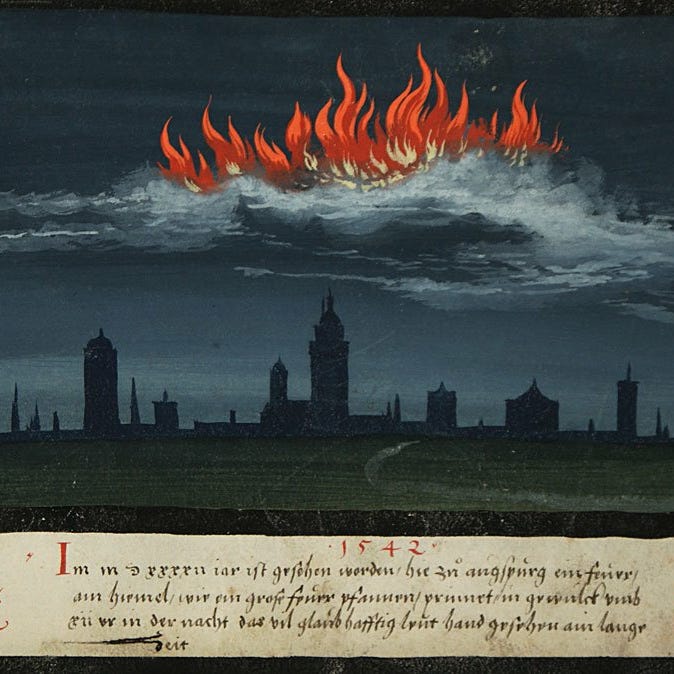 1542
Im m d xxxxii iar ist gesehen worden / hie zů augspurg ein feuer /
am himel / wie ein grose feuer pfannen / prinnet / in gewulck umb
xii ur in der nacht das vil glaubhafftig leut hand gesehen ain lange
Zeit